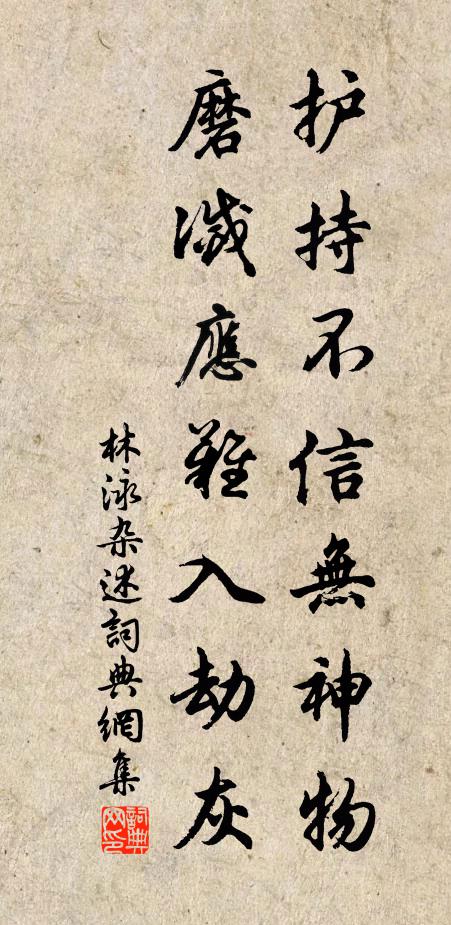 护持不信無神物
磨滅應難入劫灰
林泳杂述詞典網集
詞典网印